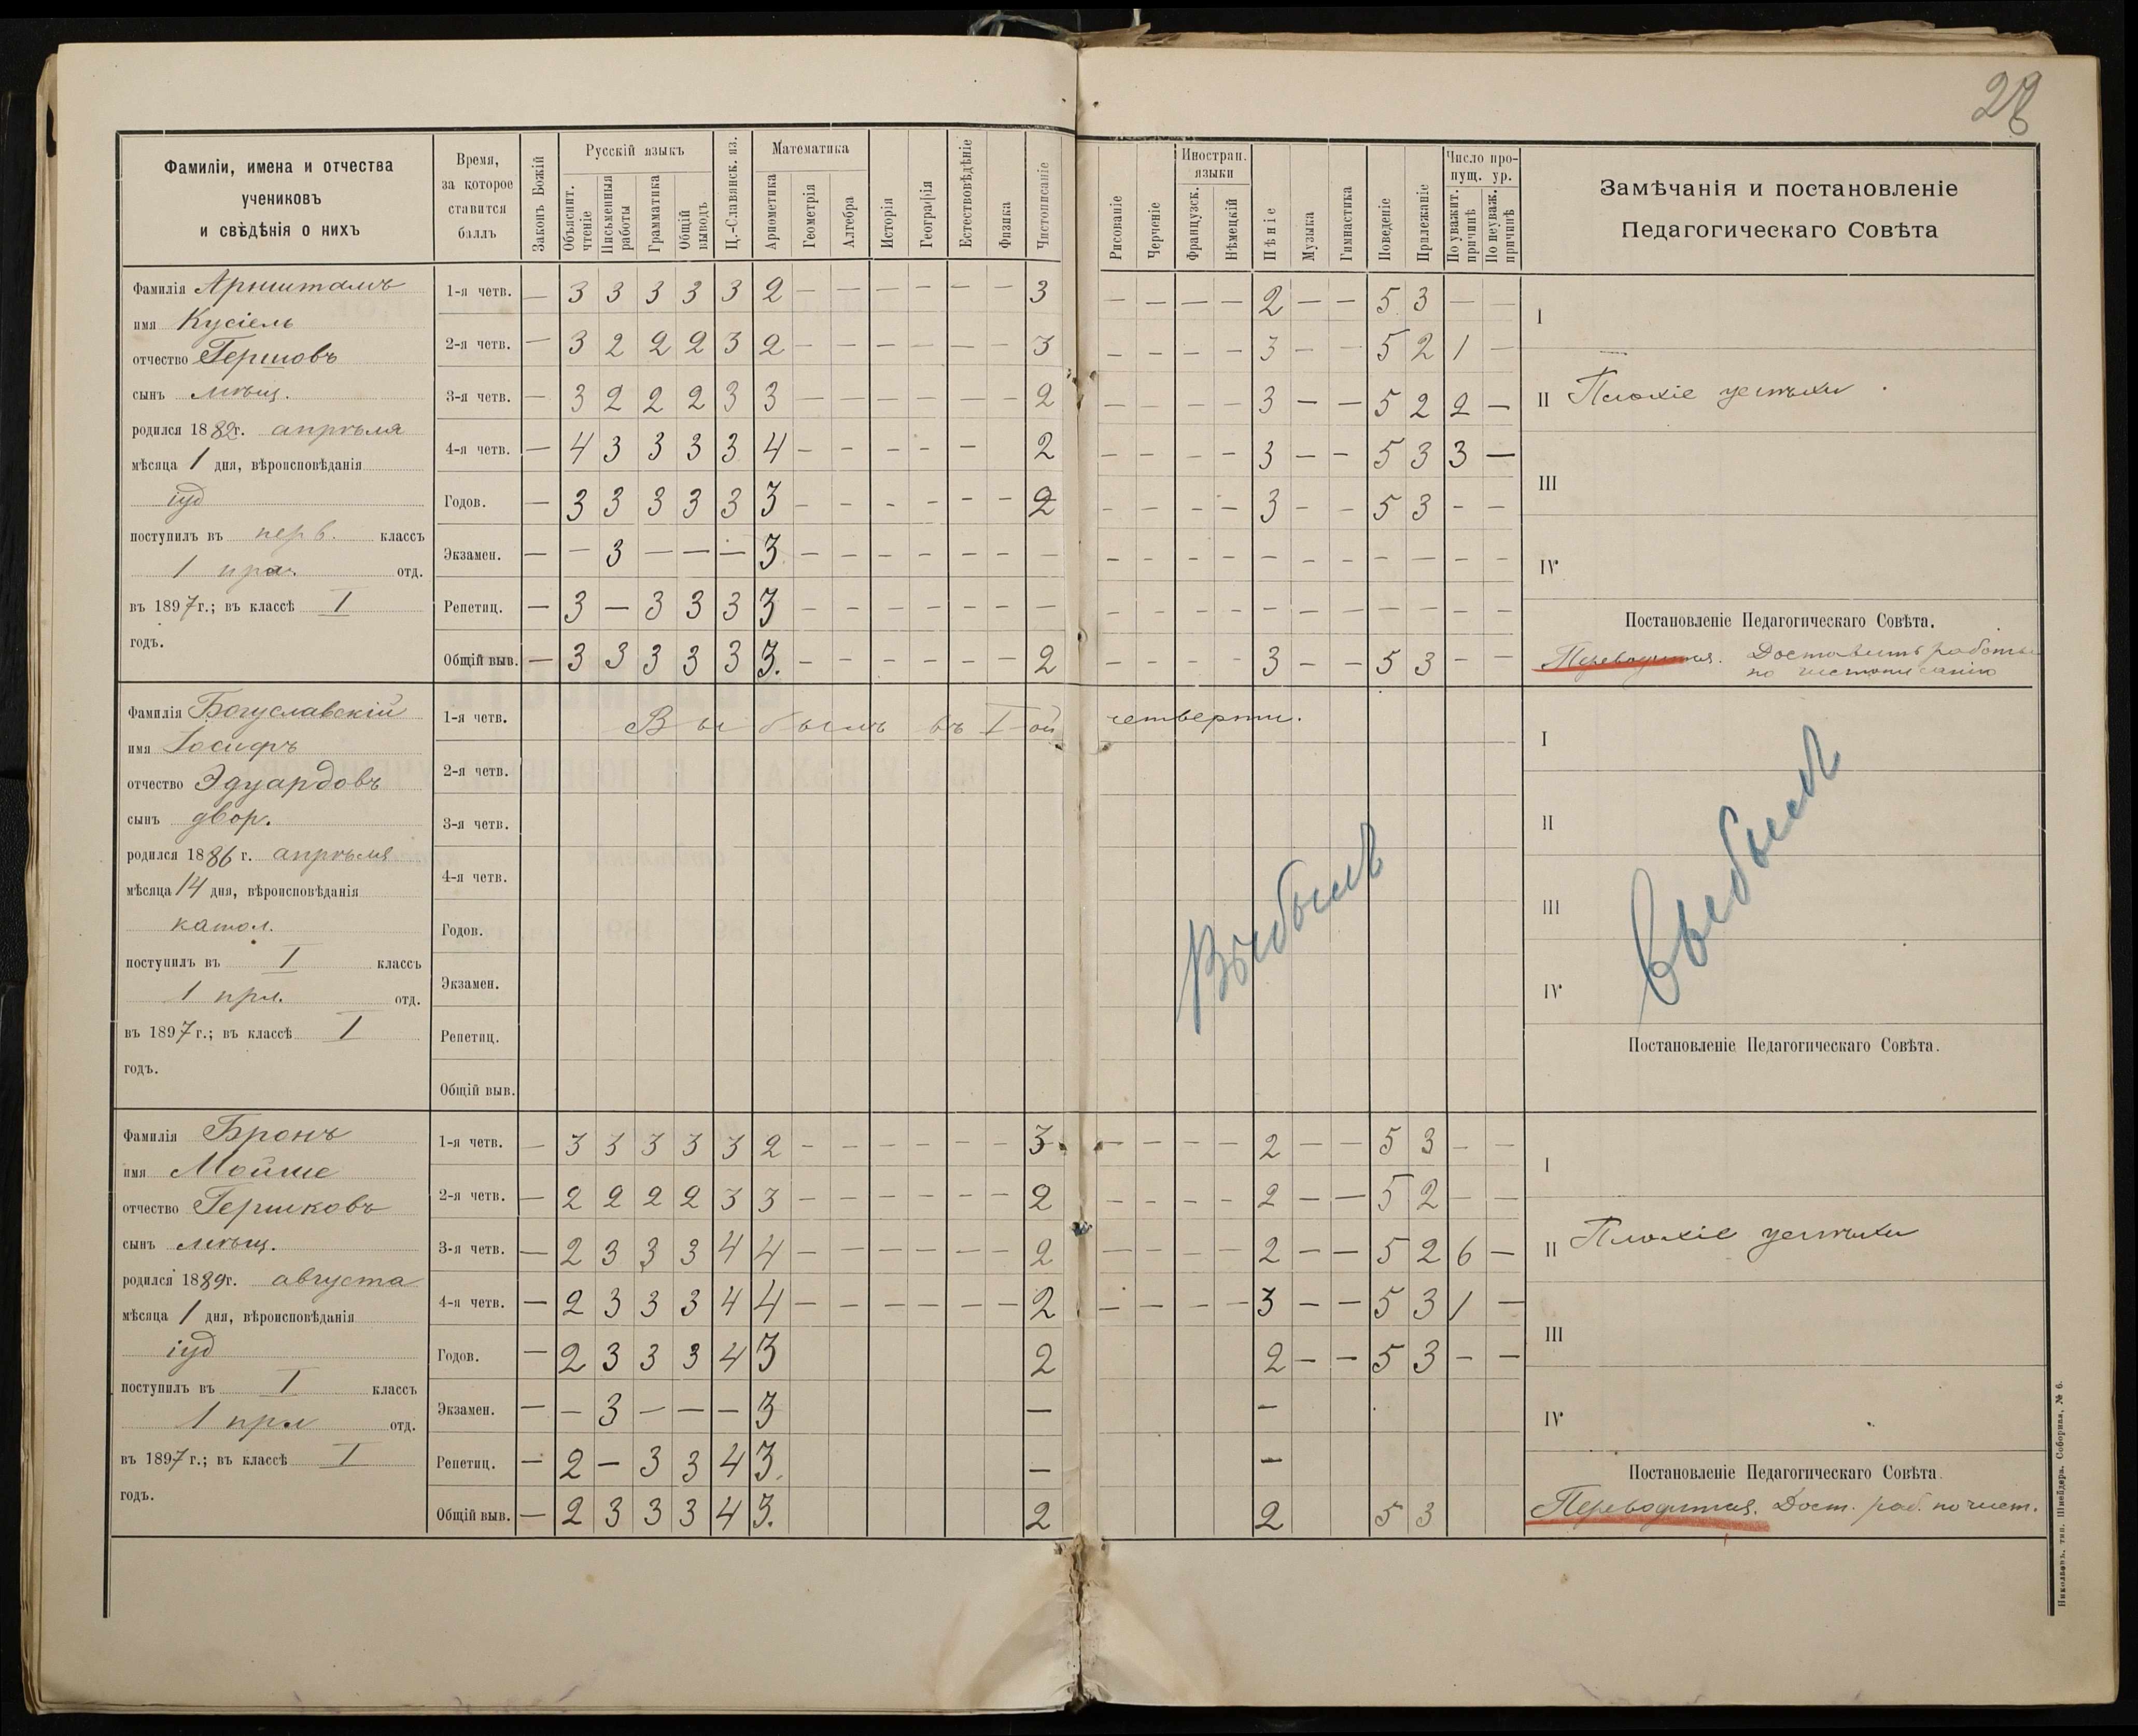 28
Фамиліи, имена и отчества
учениковъ
и свѣдѣнія о нихъ
Время,
за которое
ставится
баллъ
Законъ Божій
Русскій языкъ
Объяснит. чтеніе
Письменныя работы
Грамматика
Общій выводъ
Ц.-Славянск. яз.
Математика
Ариѳметика
Геометрія
Алгебра
Исторія
Географія
Естествовѣдѣніе
Физика
Чистописаніе
Рисованіе
Черченіе
Иностран. языки
Французск.
Нѣмецкій
Пѣніе
Музыка
Гимнастика
Поведеніе
Прилежаніе
Число пропущ. ур.
По уважит. причинѣ
По неуваж. причинѣ
Замѣчанія и постановленіе
Педагогическаго Совѣта
Фамилія Арнштамъ
имя Кусіель
отчество Гершовъ
сынъ мѣщ.
родился 1882г. апрѣля
мѣсяца 1 дня, вѣроисповѣданія
іуд
поступилъ въ перв. классъ
1 пра. отд.
въ 1897г.; въ классѣ I
годъ.
1-я четв. — 3 3 3 3 3 2 — — — — — — 3 — — — — 2 — — 5 3 — —
2-я четв. — 3 2 2 2 3 2 — — — — — — 3 — — — — 3 — — 5 2 1 —
3-я четв. — 3 2 2 2 3 3 — — — — — — 2 — — — — 3 — — 5 2 2 —
4-я четв. — 4 3 3 3 3 4 — — — — — 2 — — — — 3 — — 5 3 3 —
Годов. — 3 3 3 3 3 3 — — — — — — 2 — — — — 3 — — 5 3 — —
Экзамен. — — 3 — — — 3 — — — — — — — — — — — — — — — — — —
Репетиц. — 3 — 3 3 3 3 — — — — — — — — — — — — — — — — — —
Общій выв. — 3 3 3 3 3 3. — — — — — — 2 — — — — 3 — — 5 3 — —
I
II Плохіе успѣхи.
III
IV
Постановленіе Педагогическаго Совѣта.
Переводится. Доставить работы
по чистописанію
Фамилія Богуславскій
имя Іосифъ
отчество Эдуардовъ
сынъ двор.
родился 1886 г. апрѣля
мѣсяца 14 дня, вѣроисповѣданія
катол.
поступилъ въ I классъ
1 прл. отд.
въ 1897 г.; въ классѣ I
годъ.
1-я четв. Выбылъ въ I-ой четверти.
2-я четв.
3-я четв.
4-я четв.
Годов.
Экзамен.
Репетиц.
Общій выв.
Выбылъ
I
II
III
IV
Выбылъ
Постановленіе Педагогическаго Совѣта.
Фамилія Бронъ
имя Мойше
отчество Гершковъ
сынъ мѣщ.
родился 1889г. августа
мѣсяца 1 дня, вѣроисповѣданія
іуд
поступилъ въ I классъ
1 прл отд.
въ 1897 г.; въ классѣ I
годъ.
1-я четв. — 3 3 3 3 3 2 — — — — — — 3 — — — — 2 — — 5 3 — —
2-я четв. — 2 2 2 2 3 3 — — — — — — 2 — — — — 2 — — 5 2 — —
3-я четв. — 2 3 3 3 4 4 — — — — — — 2 — — — — 2 — — 5 2 6 —
4-я четв. — 2 3 3 3 4 4 — — — — — — 2 — — — — 3 — — 5 3 1 —
Годов. — 2 3 3 3 4 3 2 2 — — 5 3 — —
Экзамен. — — 3 — — — 3 — —
Репетиц. — 2 — 3 3 4 3. — —
Общій выв. — 2 3 3 3 4 3. 2 2 5 3
I
II Плохіе успѣхи
III
IV
Постановленіе Педагогическаго Совѣта.
Переводится. Дост. раб. по чист.
Николаевъ, тип. Шнейдера, Соборная, № 6.